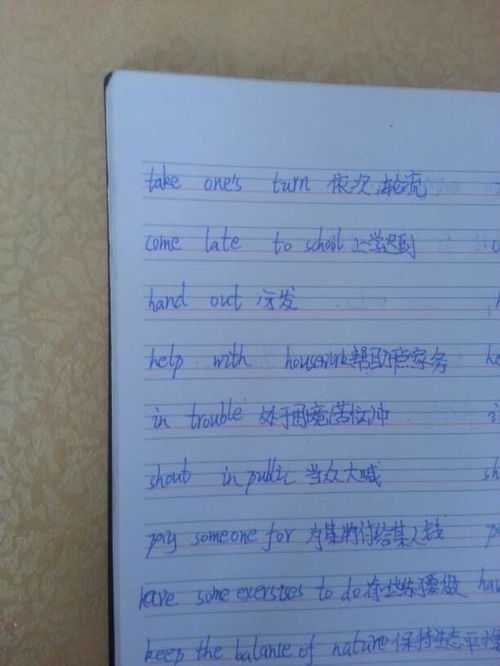 take one's turn 依次,轮流
come late to school 上学迟到
hand out 分发
help with housework 帮助做家务
in trouble 处于困境(苦恼)中
shout in public 当众大喊
pay someone for 为某物付给某人钱
have some exersises to do 有些练习要做 hav
keep the balance of nature 保持生态平衡